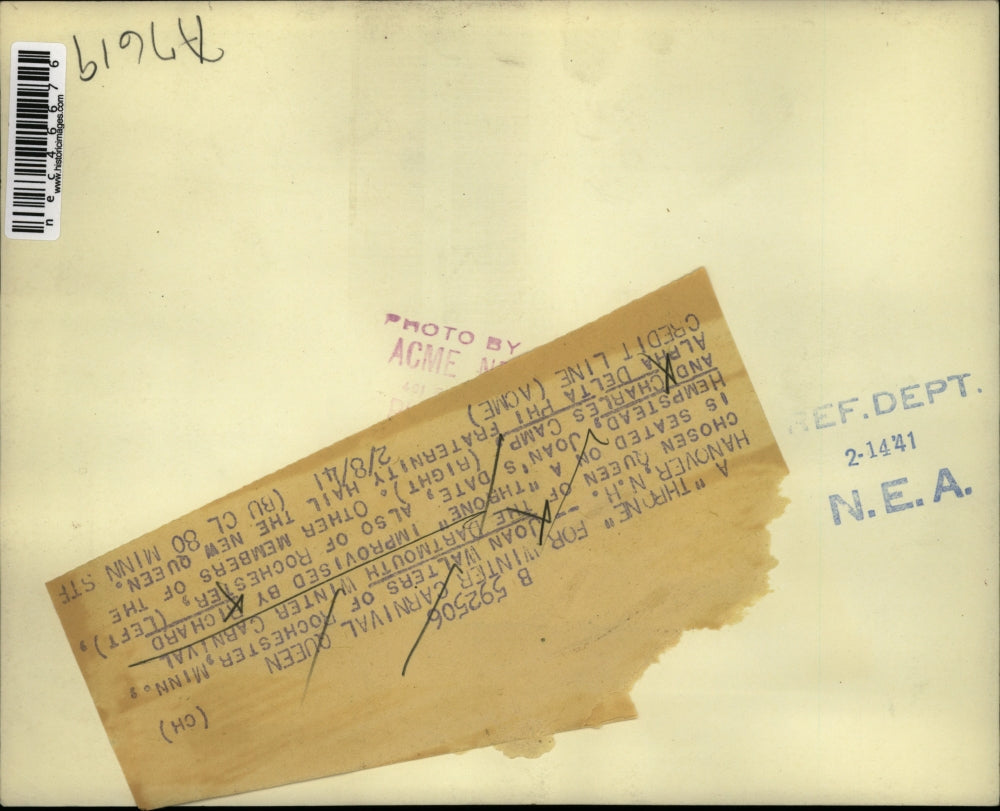 A7619
n e c 4 6 6 7 6
www.historicimages.com
PHOTO BY
ACME
REF. DEPT.
2-14'41
N.E.A.
B 592506
A "THRONE" FOR WINTER CARNIVAL QUEEN
HANOVER, N.H. JOAN WALTERS OF ROCHESTER, MINN.,
CHOSEN QUEEN OF DARTMOUTH WINTER CARNIVAL
IS SEATED ON A "THRONE" IMPROVISED BY RICHARD
HEMPSTEAD, JOAN'S DATE, ALSO OF ROCHESTER, (LEFT),
AND CHARLES CAMP, (RIGHT). OTHER MEMBERS OF THE
ALPHA DELTA PHI FRATERNITY HAIL THE NEW QUEEN.
CREDIT LINE (ACME) 2/8/41 (RU CL 80 MINN STF
(CH)